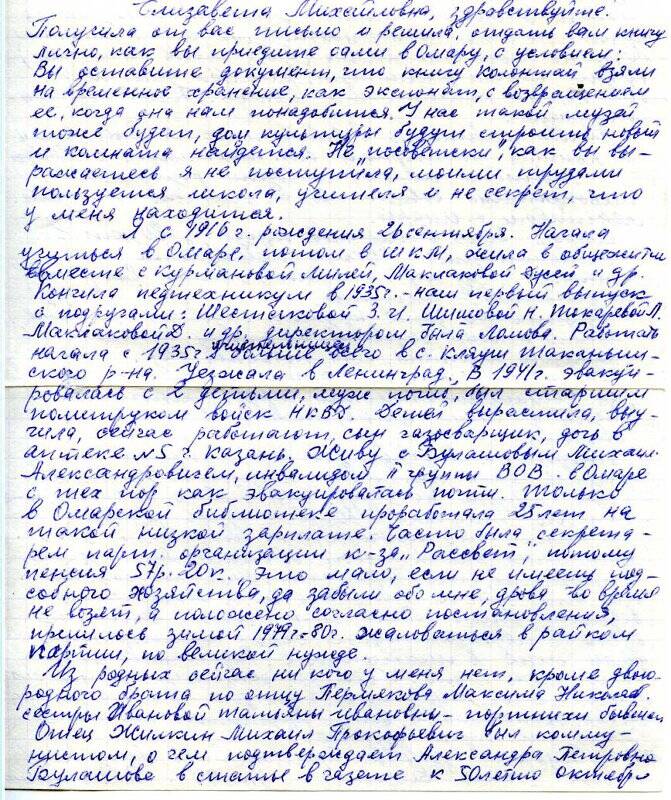 Елизавета Михайловна, здравствуйте.
Получила от вас письмо и решила, отдать вам книгу
лично, как вы приедите сами в Омару, с условием:
Вы оставите документ, что книгу Колонтай взяли
на временное хранение, как экспонат, с возвращением
ее, когда она нам понадобится. У нас такой музей
тоже будет, дом культуры будут строить новый
и комната найдется. Не "посоветски", как вы вы-
ражаетесь я не поступила, моими трудами
пользуется школа, учителя и не секрет, что
у меня находится.
Я с 1916 г. рождения 26 сентября. Начала
учиться в Омаре, потом в ШКМ, жила в общежитии
вместе с Курмановой Лилей, Маклаковой Дусей и др.
Кончила педтехникум в 1935г. - наш первый выпуск
с подругами: Шестаковой З. И. Шишовой Н. Токаревой Л.
Маклаковой Д. и др. директором была Ломова. Работать
начала с 1935г. учительницей больше всего в с. Кляуши Таканыш-
ского р-на. Уезжала в Ленинград, в 1941г. эвакуи-
ровалась с 2 детьми, муж погиб, был старшим
политруком войск НКВД. Детей вырастила, выу-
чила, сейчас работают, сын газосварщик, дочь в
аптеке №5 г. Казань. Живу с Булашовым Михаил.
Александровичем, инвалидом II группы ВОВ. в Омаре
с тех пор как эвакуировалась почти. Только
в Омарской библиотеке проработала 25 лет на
такой низкой зарплате. Часто была секрета-
рем парт. организации к-за "Рассвет", потому
пенсия 57р. 20к. Это мало, если не имеешь под-
собного хозяйства, да забыли обо мне, дрова во время
не возят, а положено согласно постановления,
пришлось зимой 1979г-80г. жаловаться в райком
партии, по великой нужде.
Из родных сейчас ни кого у меня нет, кроме двою-
родного брата по отцу Пермякова Максима Николаев.
сестры Ивановой Татьяны Ивановны - портнихи бывшей
Отец Жилкин Михаил Прокофьевич был комму-
нистом, о чем подтверждает Александра Петровна
Булашова в статье в газете к 50летию октября